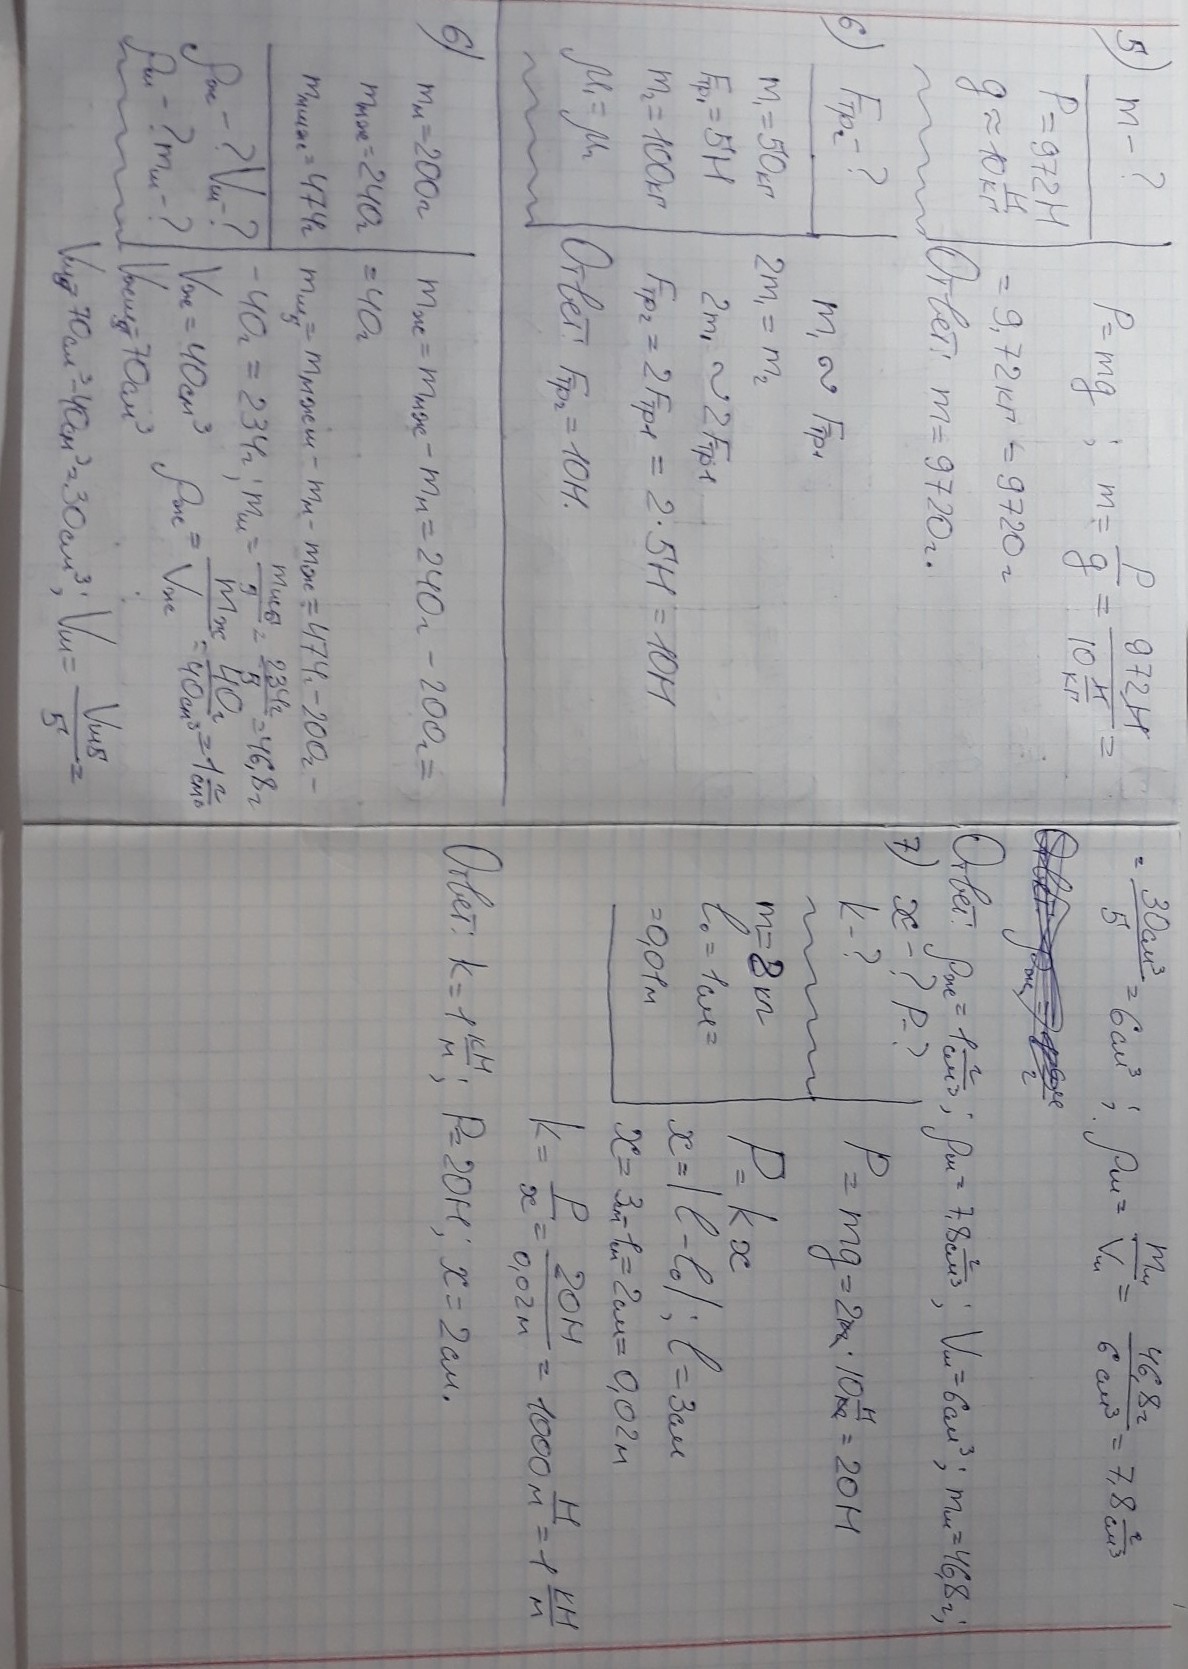 5) m - ?
P = 972Н
g ≈ 10 Н/кг
P = mg ; m = P/g = 972Н / 10 Н/кг =
= 9,72кг = 9720г
Ответ: m = 9720г.
6) Fтр₂ - ?
m₁ = 50кг
Fтр₁ = 5Н
m₂ = 100кг
μ₁ = μ₂
m₁ ~ Fтр1
2m₁ = m₂
2m₁ ~ 2Fтр1
Fтр₂ = 2Fтр1 = 2·5Н = 10Н
Ответ: Fтр₂ = 10Н.
6)
mм = 200г
mмж = 240г
mмшж = 474г
ρж - ? Vш - ?
ρш - ? mш - ?
mж = mмж - mм = 240г - 200г =
= 40г
mш5 = mмжш - mм - mж = 474г - 200г -
- 40г = 234г; mш = mш5/5 = 234г/5 = 46,8г
Vж = 40см³ ρж = mж/Vж = 40г/40см³ = 1 г/см³
Vжш5 = 70см³
Vш5 = 70см³ - 40см³ = 30см³; Vш = Vш5/5 =
= 30см³/5 = 6см³ ; ρш = mш/Vш = 46,8г/6см³ = 7,8 г/см³
Ответ: ρж = 1 г/см³; ρш = 7,8 г/см³; Vш = 6см³; mш = 46,8г;
7) x - ? P - ?
k - ?
m = 2кг
l₀ = 1см =
= 0,01м
P = mg = 2кг · 10 Н/кг = 20Н
P = kx
x = |l - l₀| ; l = 3см
x = 3см - 1см = 2см = 0,02м
k = P/x = 20Н/0,02м = 1000 Н/м = 1 кН/м
Ответ: k = 1 кН/м; P = 20Н; x = 2см.